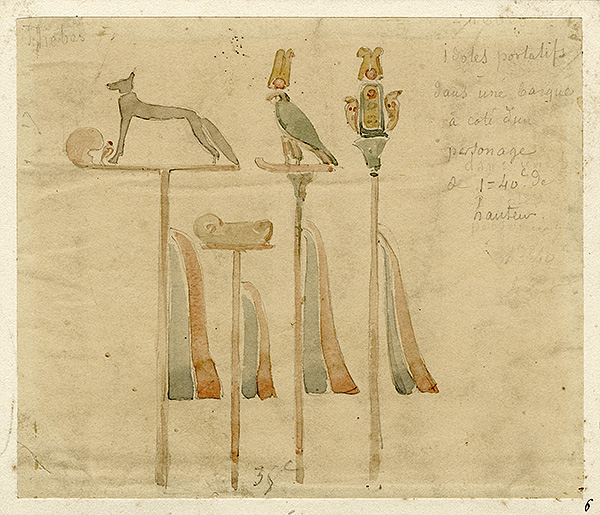 Thebes
idoles portatifs
dans une barque
a coté d'un
personage
de 1=40ᶜ de
hauteur
35ᶜ
6